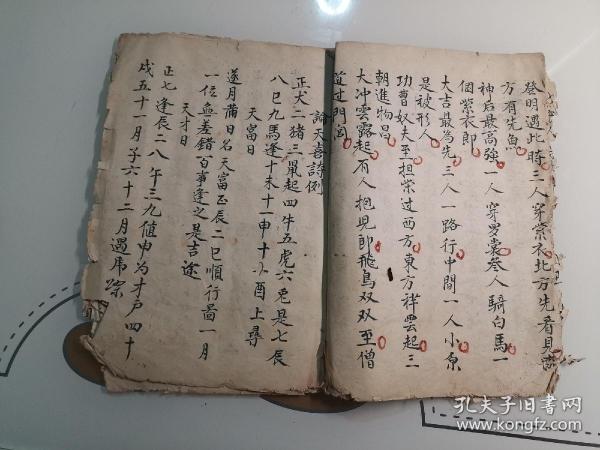 登明遇此時三人穿紫衣北方先看見
方有先魚
神后最高強一人穿罗裳叁人騎白馬一
個紫衣郎
大吉最為先三人一路行中間一人小原
是被形人
功曹奴夫至担柴过西方東方祥雲起三
朝進物昌
大冲雲露起有人抱児郎飛鳥双双至僧
道过門
論天喜詩例
正犬二猪三鼠起四牛五虎六兎是七辰
八巳九馬逢十未十一申十二酉上尋
天富日
逐月莆日名天富正辰二巳順行啚一月
一位無差錯百事逢之是吉途
天才日
正七逢辰二八午三九值申为才戶四十
戌五十一月子六十二月遇虎踪
孔夫子旧书网
www.kongfz.com